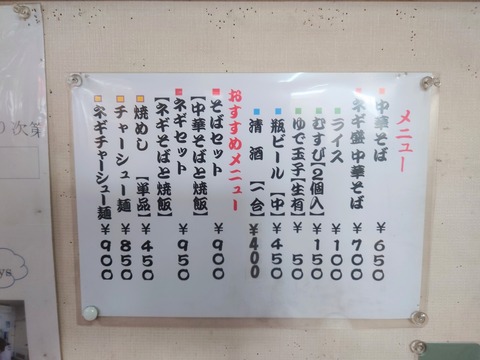 メニュー
中華そば ￥650
ネギ盛中華そば ￥700
ライス ￥100
むすび【2個入】 ￥150
ゆで玉子【生有】 ￥50
瓶ビール【中】 ￥450
清酒【一合】 ￥400
おすすめメニュー
そばセット ￥900
【中華そばと焼飯】
ネギセット ￥950
【ネギそばと焼飯】
焼めし【単品】 ￥450
チャーシュー麺 ￥850
ネギチャーシュー麺 ￥900
次第
ys